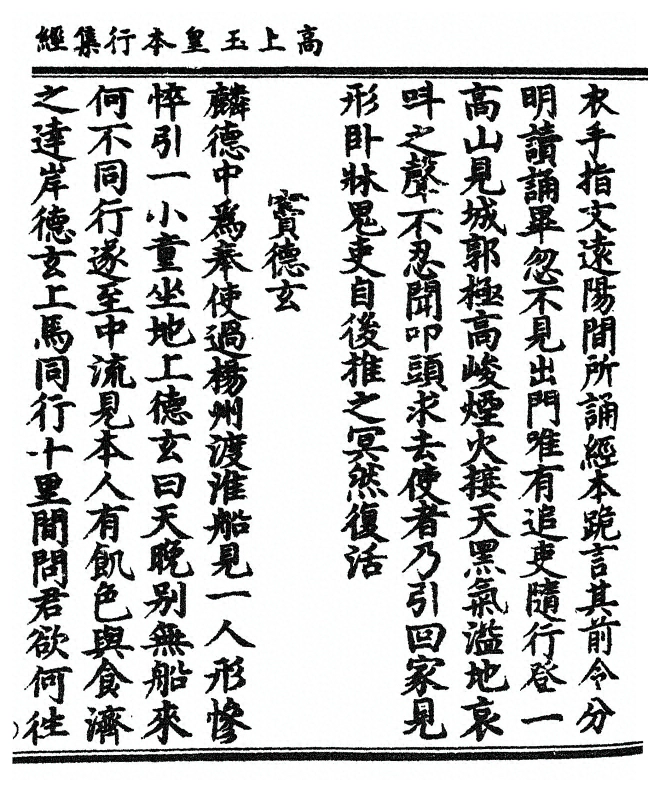 高上玉皇本行集經
衣手指文遠陽間所誦經本跪言其前令分
明讀誦畢忽不見出門唯有追吏隨行登一
高山見城郭極高峻煙火接天黑氣滃地哀
呌之聲不忍聞叩頭求去使者乃引回家見
形卧牀鬼吏自後推之冥然復活
竇德玄
麟德中爲奉使過楊州渡淮船見一人形慘
悴引一小童坐地上德玄曰天晚别無船來
何不同行遂至中流見本人有飢色與食濟
之達岸德玄上馬同行十里間問君欲何往